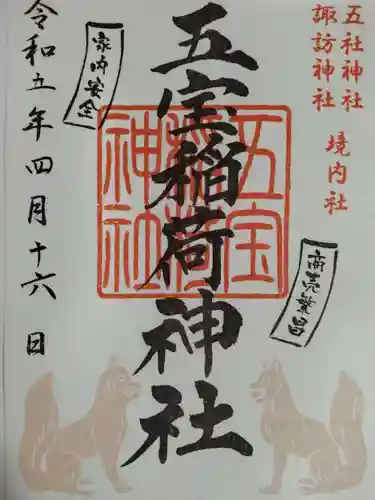 五社神社
諏訪神社 境内社
五宝稲荷神社
五宝稲荷神社
商売繁昌
家内安全
令和五年四月十六日